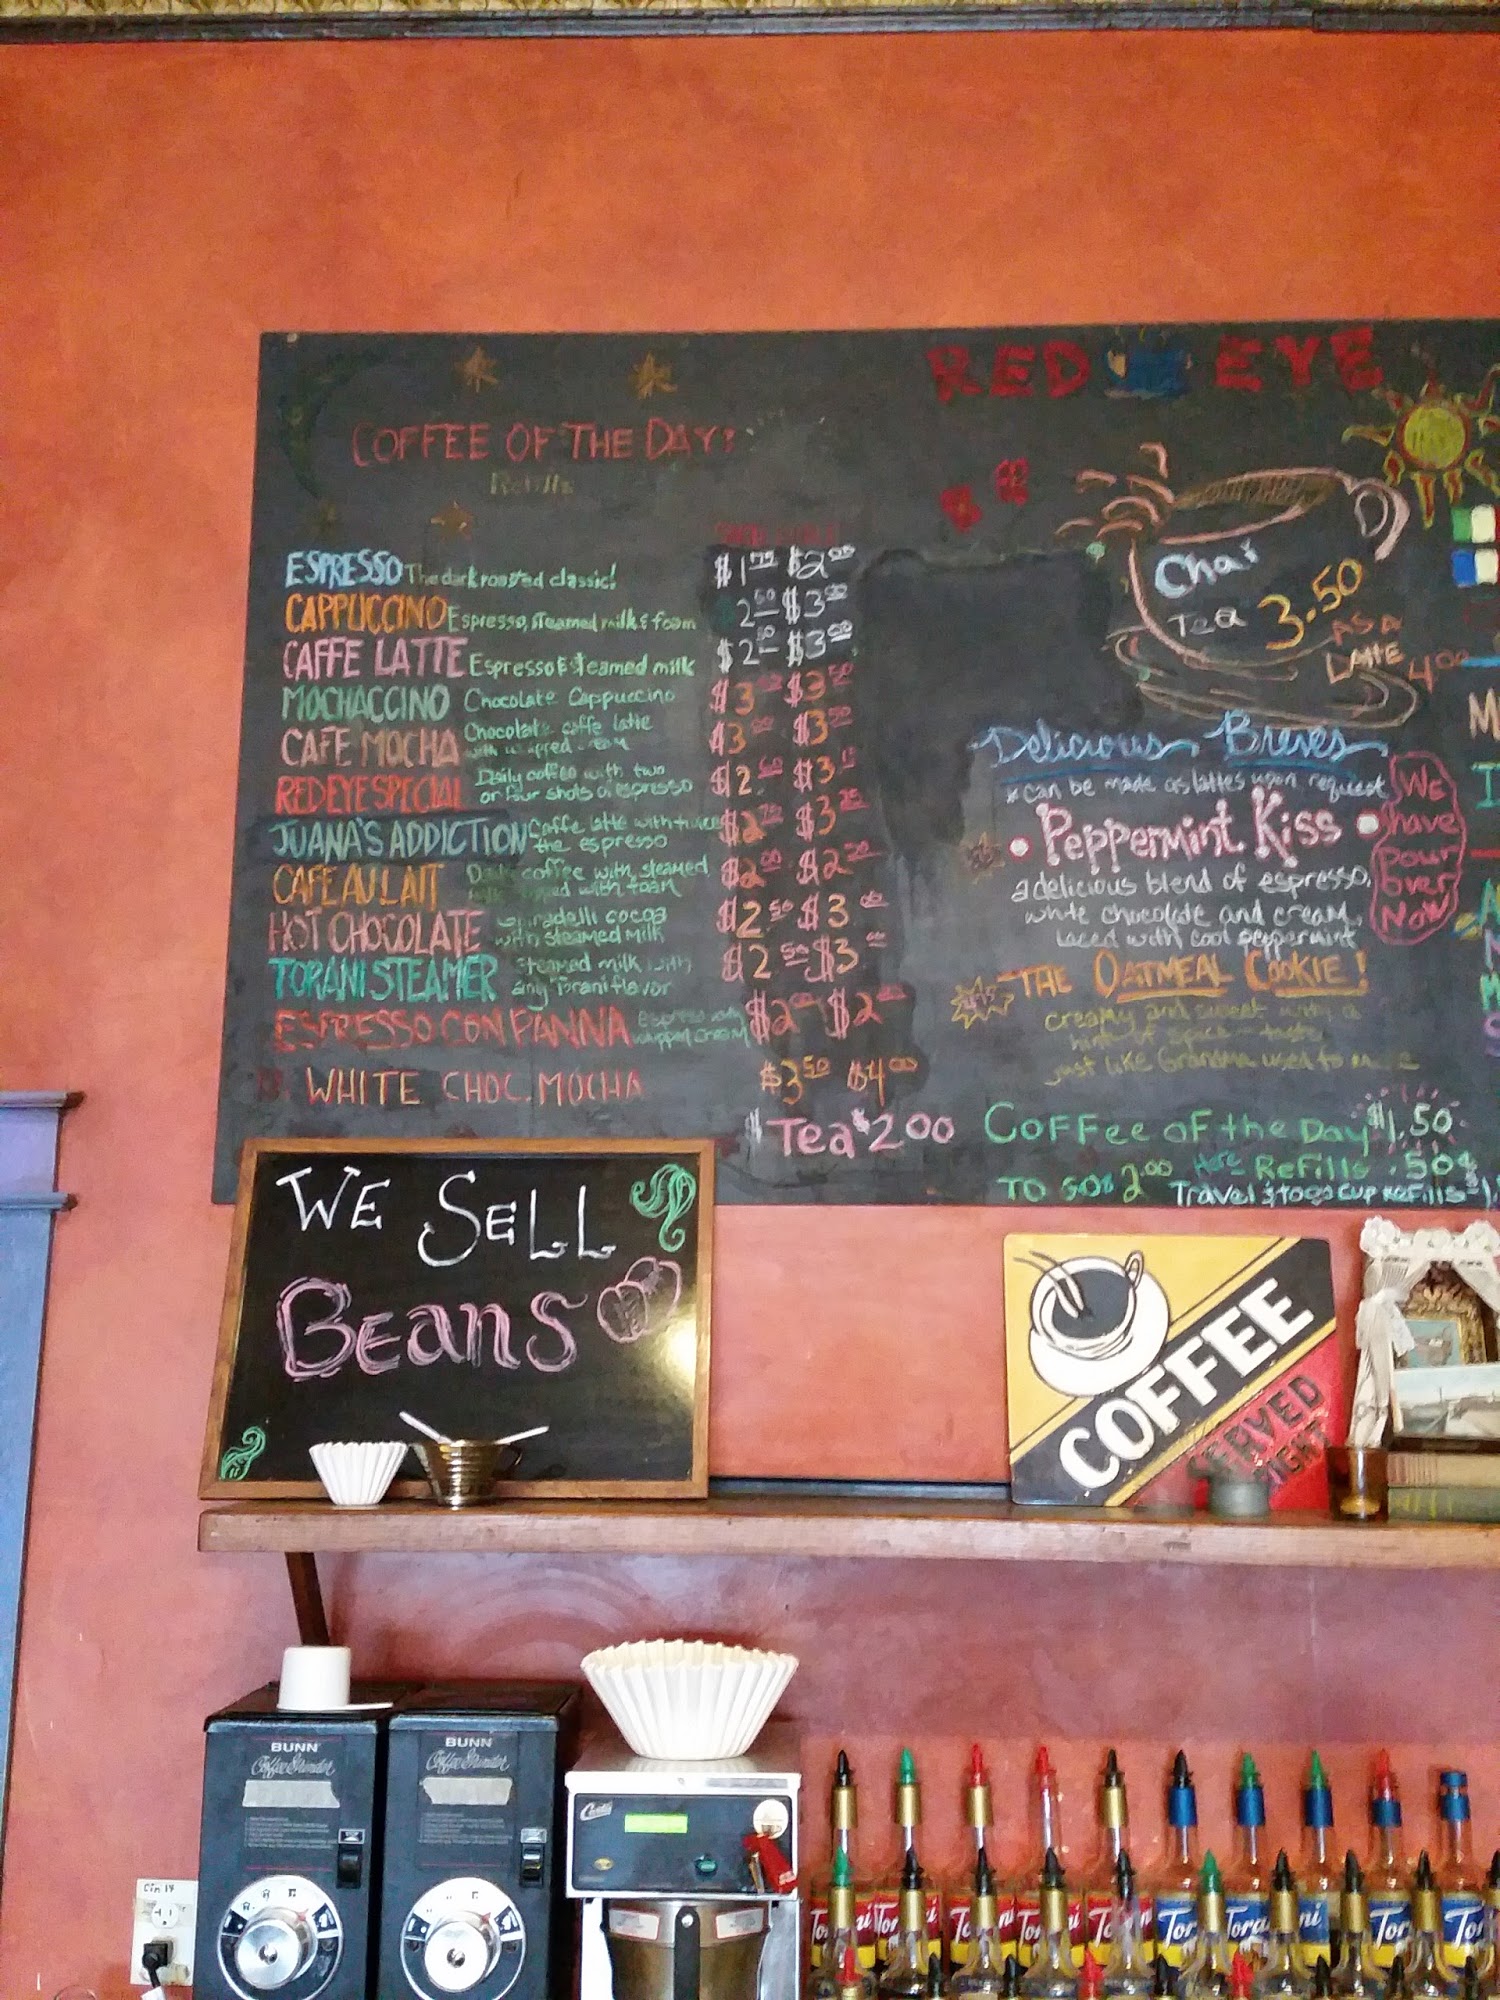 RED EYE
COFFEE OF THE DAY:
Refills
ESPRESSO The dark roasted classic! $1.75 $2.00
CAPPUCCINO Espresso, steamed milk & foam 2.50 $3.00
CAFFE LATTE Espresso & steamed milk $2.50 $3.00
MOCHACCINO Chocolate Cappuccino $3.00 $3.50
CAFE MOCHA Chocolate caffe latte with whipped cream $3.00 $3.50
REDEYE SPECIAL Daily coffee with two or four shots of espresso $2.60 $3.15
JUANA'S ADDICTION Caffe latte with twice the espresso $2.75 $3.25
CAFE AU LAIT Dark coffee with steamed milk topped with foam $2.00 $2.50
HOT CHOCOLATE Ghiradelli cocoa with steamed milk $2.50 $3.00
TORANI STEAMER steamed milk with any Torani flavor $2.50 $3.00
ESPRESSO CON PANNA espresso with whipped cream $2.00 $2
WHITE CHOC. MOCHA $3.50 $4.00
$ Tea $2.00
Chai
Tea 3.50
AS A
LATTE 4.00
Delicious Breves
* can be made as lattes upon request
• Peppermint Kiss •
a delicious blend of espresso,
white chocolate and cream,
laced with cool peppermint
We
have
pour
over
Now
THE OATMEAL COOKIE!
creamy and sweet with a
hint of spice - tastes
just like Grandma used to make
Coffee of the Day $1.50
TO GO $2.00 Here Refills .50¢
Travel & togo cup refills
WE SELL
BEANS
COFFEE
SERVED
RIGHT
BUNN
Coffee Grinder
BUNN
Coffee Grinder
Curtis
Cin 14
Torani